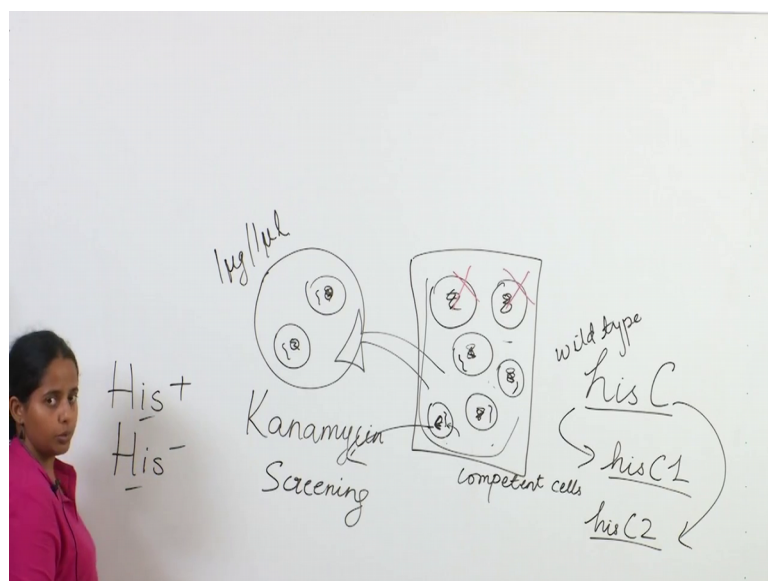 1µg/1µl
His+
His-
Kanamycin
Screening
competent cells
wild type
hisC
hisC1
hisC2